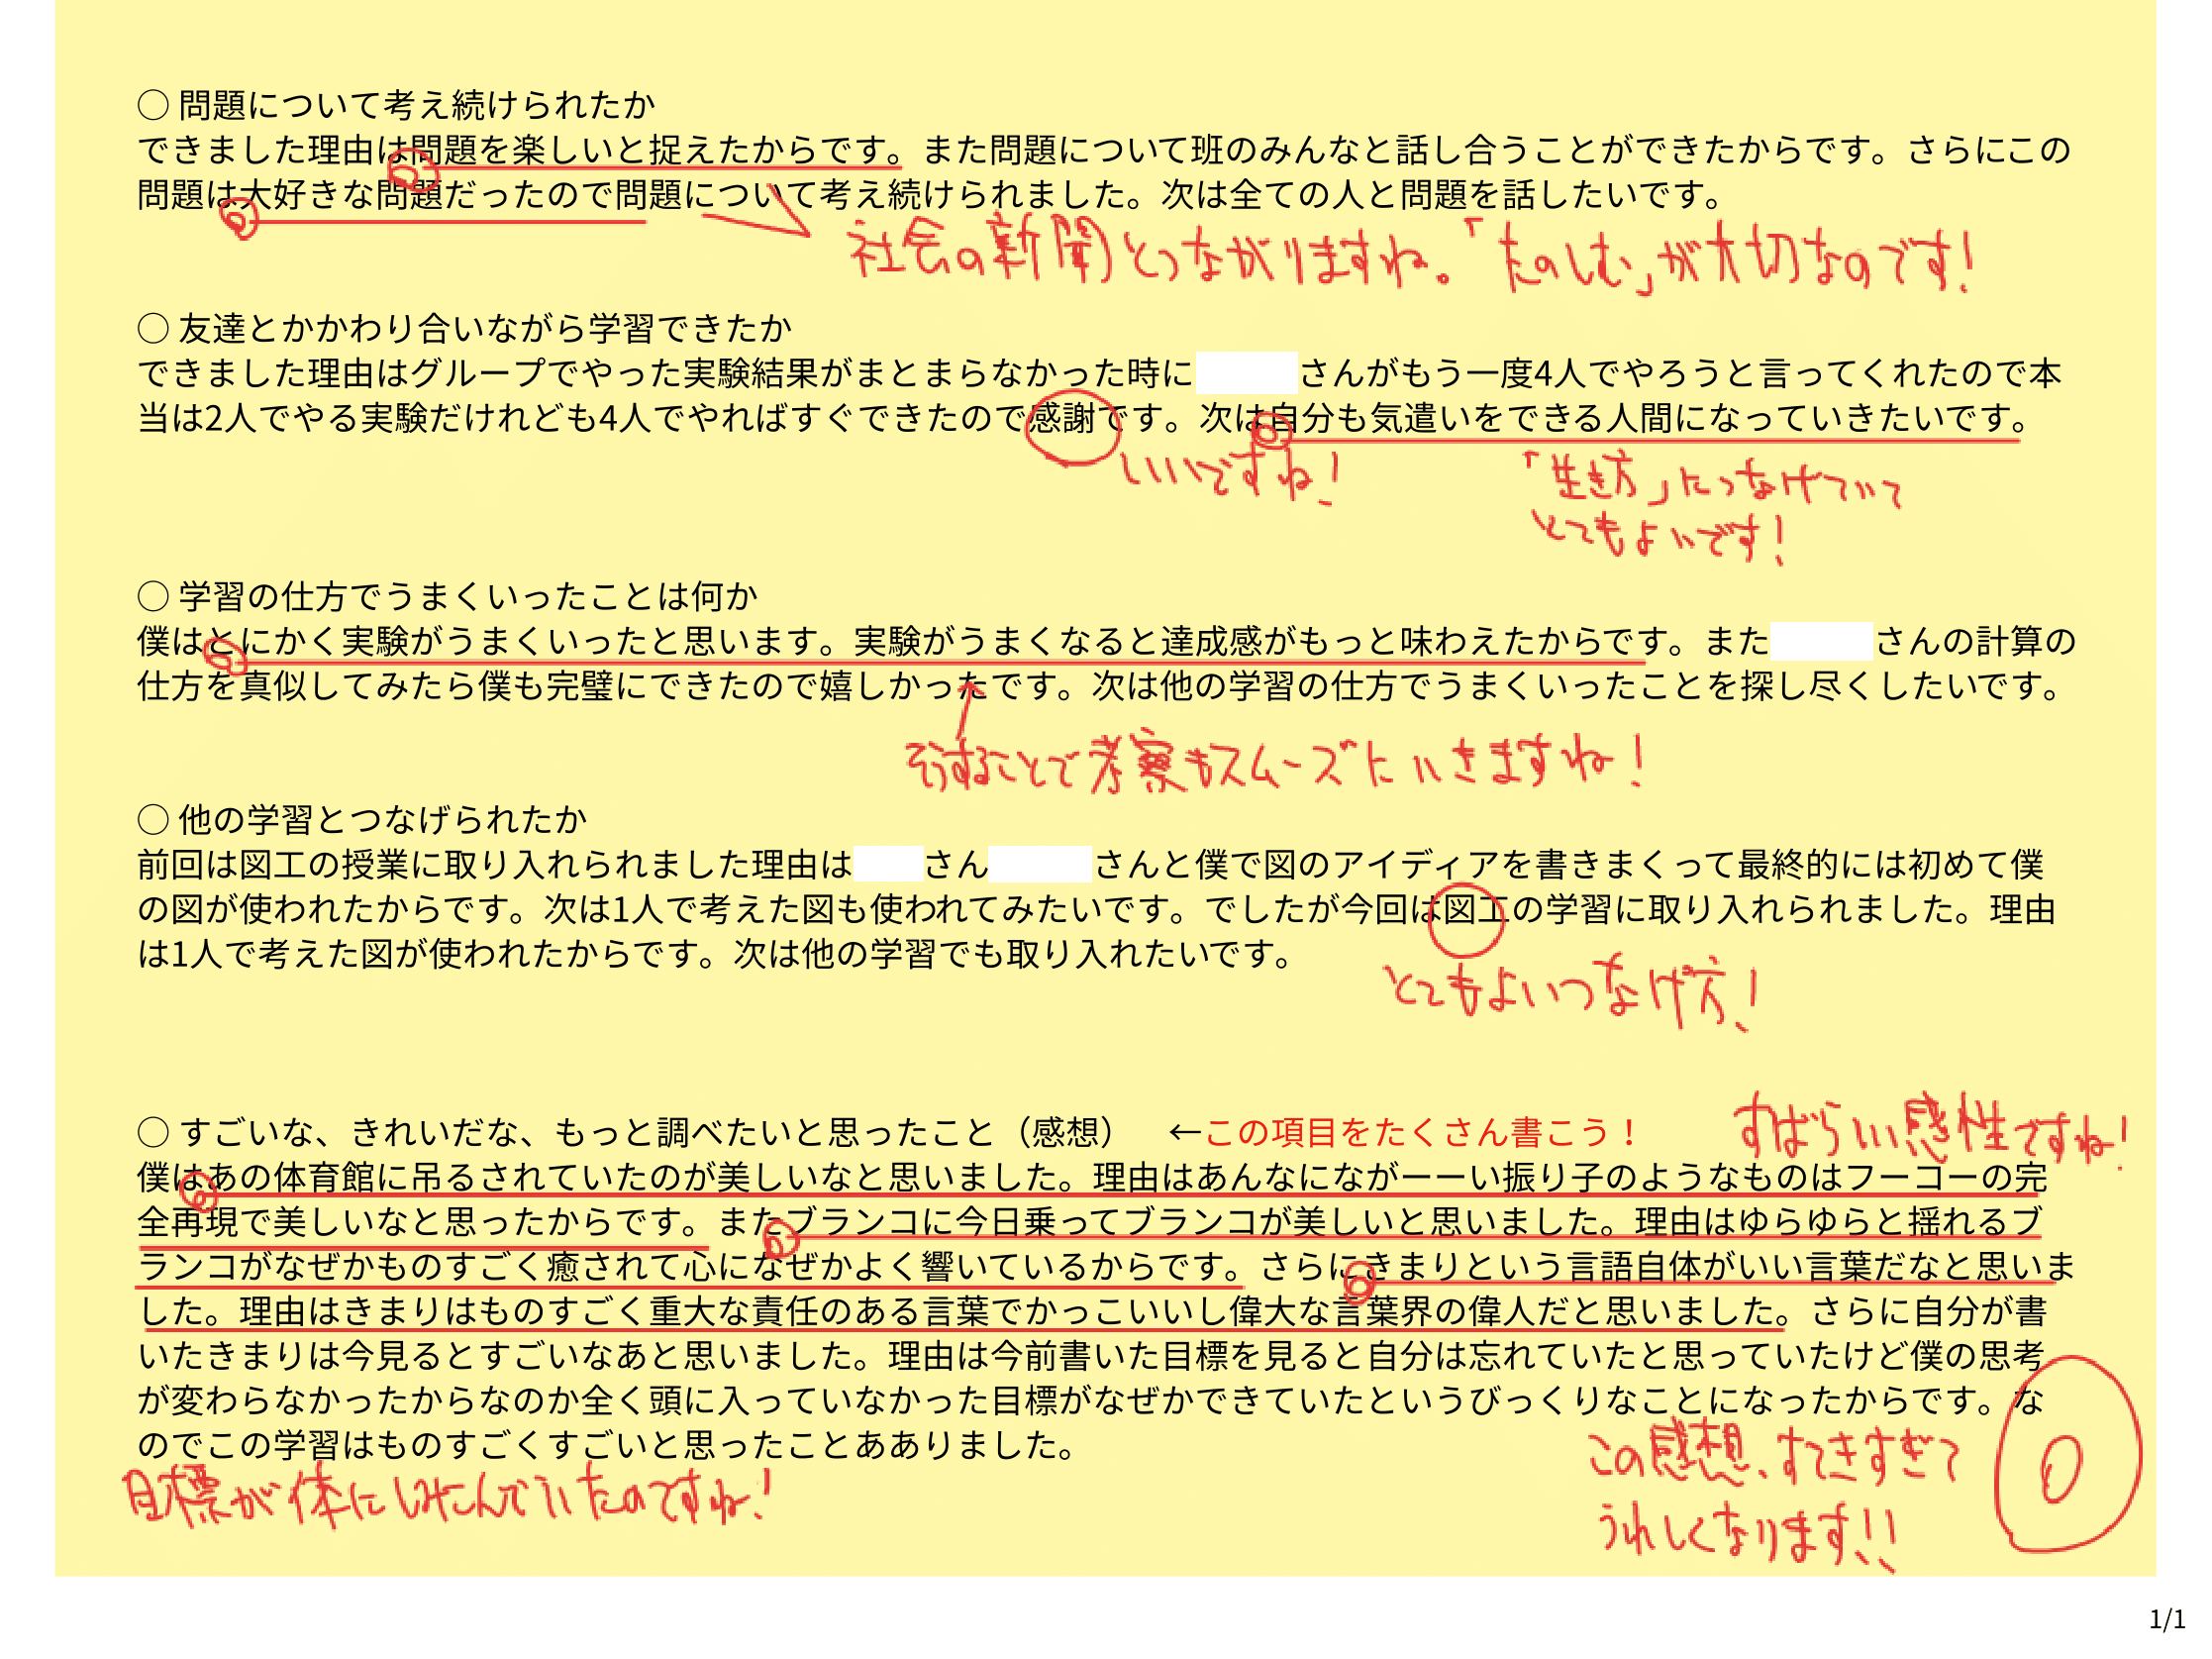 ○ 問題について考え続けられたか
できました理由は問題を楽しいと捉えたからです。また問題について班のみんなと話し合うことができたからです。さらにこの
問題は大好きな問題だったので問題について考え続けられました。次は全ての人と問題を話したいです。
社会の新聞とつながりますね。「たのしむ」が大切なのです！
○ 友達とかかわり合いながら学習できたか
できました理由はグループでやった実験結果がまとまらなかった時に さんがもう一度4人でやろうと言ってくれたので本
当は2人でやる実験だけれども4人でやればすぐできたので感謝です。次は自分も気遣いをできる人間になっていきたいです。
いいですね！
「生き方」につなげていて
とてもよいです！
○ 学習の仕方でうまくいったことは何か
僕はとにかく実験がうまくいったと思います。実験がうまくなると達成感がもっと味わえたからです。また さんの計算の
仕方を真似してみたら僕も完璧にできたので嬉しかったです。次は他の学習の仕方でうまくいったことを探し尽くしたいです。
そうすることで考察もスムーズにいきますね！
○ 他の学習とつなげられたか
前回は図工の授業に取り入れられました理由は さん さんと僕で図のアイディアを書きまくって最終的には初めて僕
の図が使われたからです。次は1人で考えた図も使われてみたいです。でしたが今回は図工の学習に取り入れられました。理由
は1人で考えた図が使われたからです。次は他の学習でも取り入れたいです。
とてもよいつなげ方！
○ すごいな、きれいだな、もっと調べたいと思ったこと（感想） ←この項目をたくさん書こう！
すばらしい感性ですね！
僕はあの体育館に吊るされていたのが美しいなと思いました。理由はあんなにながーーい振り子のようなものはフーコーの完
全再現で美しいなと思ったからです。またブランコに今日乗ってブランコが美しいと思いました。理由はゆらゆらと揺れるブ
ランコがなぜかものすごく癒されて心になぜかよく響いているからです。さらにきまりという言語自体がいい言葉だなと思いま
した。理由はきまりはものすごく重大な責任のある言葉でかっこいいし偉大な言葉界の偉人だと思いました。さらに自分が書
いたきまりは今見るとすごいなあと思いました。理由は今前書いた目標を見ると自分は忘れていたと思っていたけど僕の思考
が変わらなかったからなのか全く頭に入っていなかった目標がなぜかできていたというびっくりなことになったからです。な
のでこの学習はものすごくすごいと思ったことああありました。
目標が体にしみこんでいたのですね！
この感想、すてきすぎて
うれしくなります！！
1/1